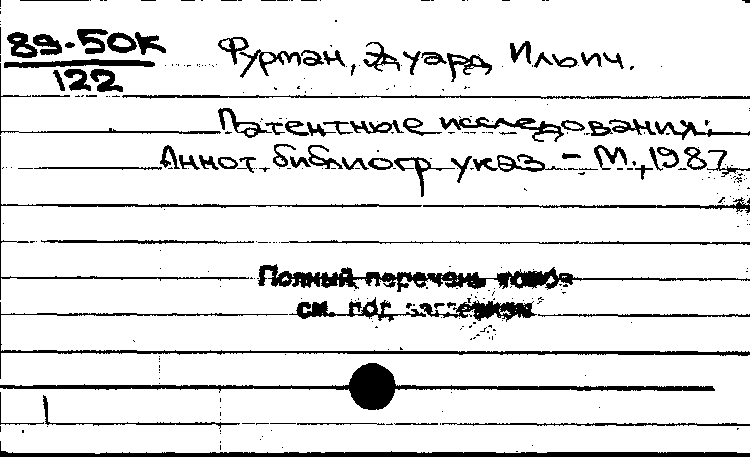 89-50к
122
Фурман, Эдуард Ильич.
Патентные исследования:
Аннот. библиогр указ. - М., 1987
Полный перечень томов
см. под заглавием